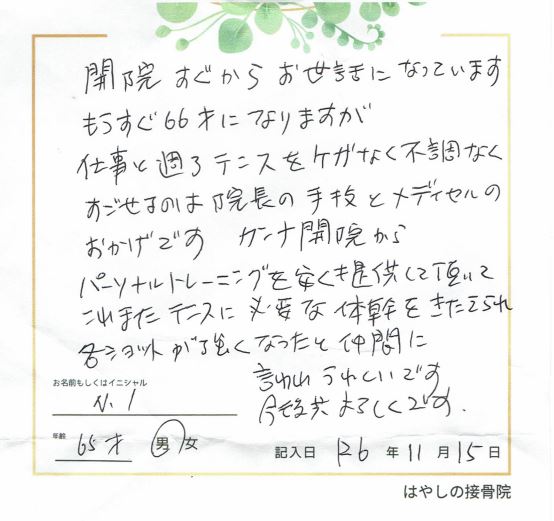 開院すぐから お世話になっています
もうすぐ66才になりますが
仕事と週3テニスをケガなく不調なく
すごせるのは院長の手技とメディセルの
おかげです カンナ開院から
パーソナルトレーニングを安く提供して頂いて
これまたテニスに必要な体幹をきたえられ
各ショットが強くなったと仲間に
言われ うれしいです
今後共よろしくです.
お名前もしくはイニシャル
N. I
年齢 65才 男 女
記入日 R6 年 11 月 15 日
はやしの接骨院